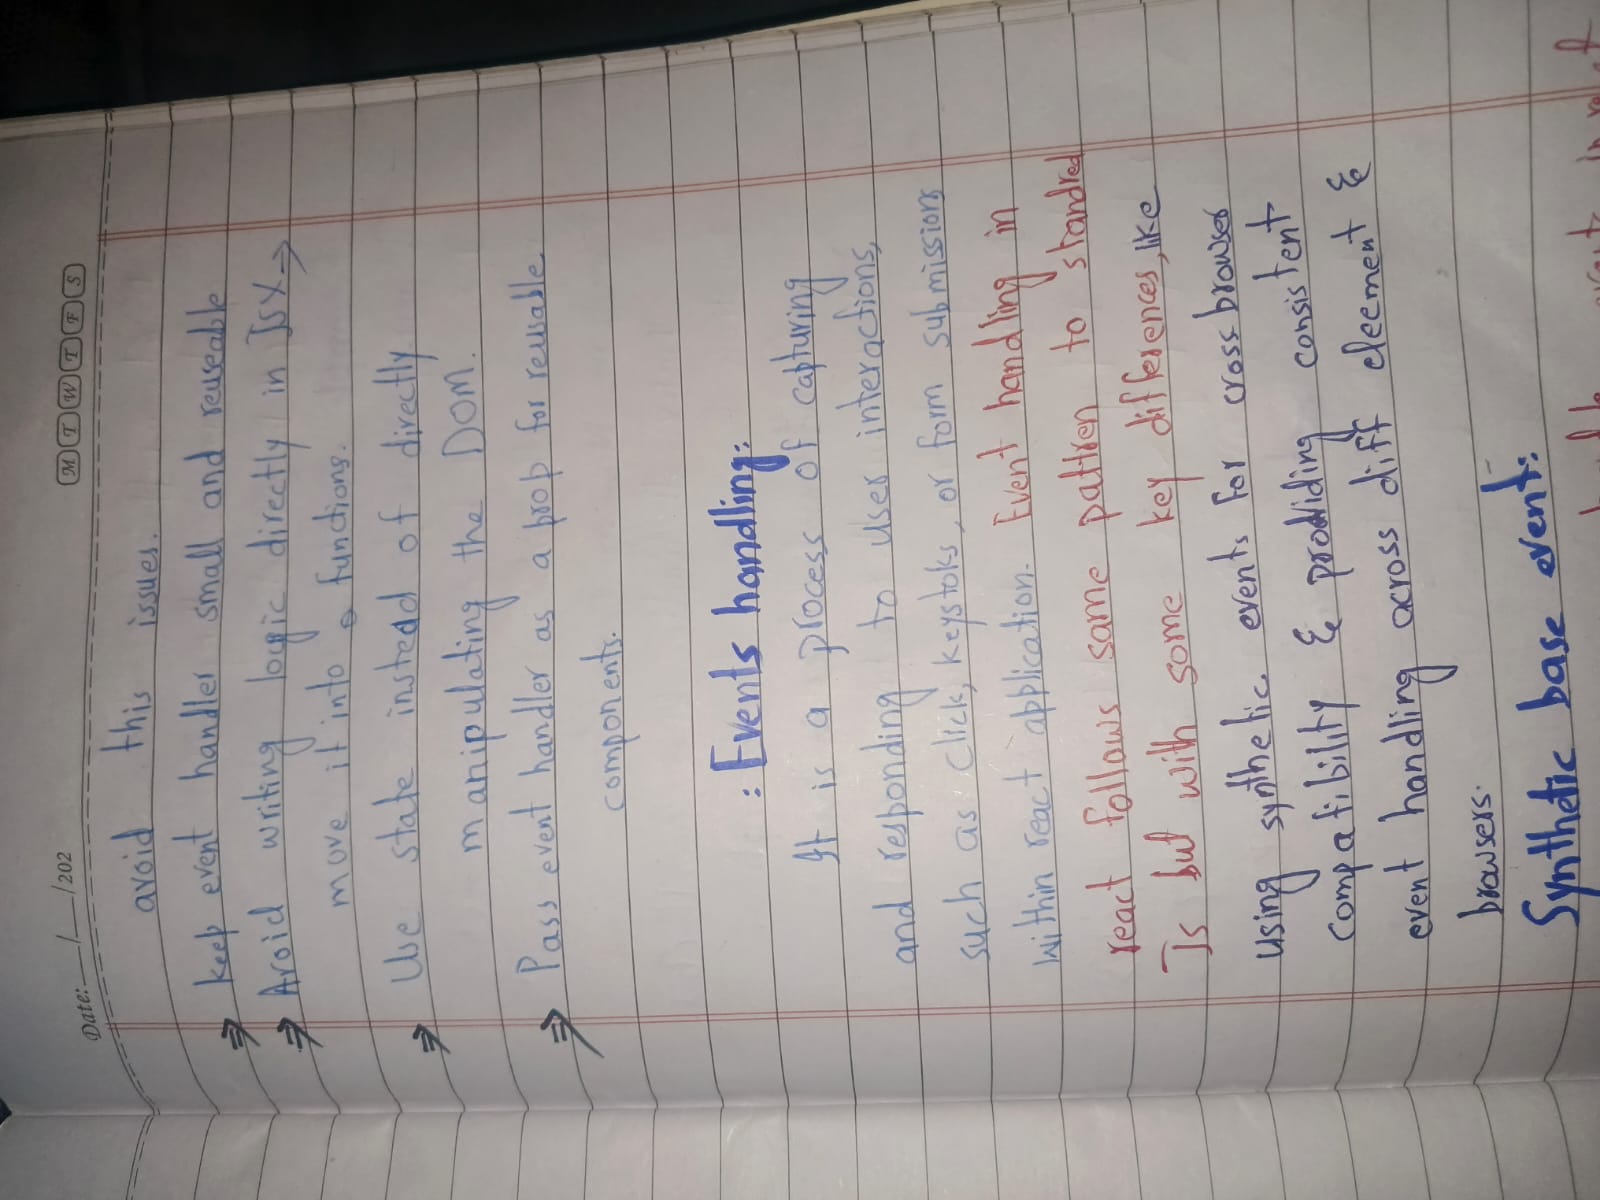 Date:___/___/202
M T W T F S
avoid this issues.
⇒ keep event handler small and reuseable
⇒ Avoid writing logic directly in Jsx →
move it into a functions.
⇒ Use state insted of directly
manipulating the DOM.
⇒ Pass event handler as a prop for reusable.
components.
: Events handling:
It is a process of capturing
and responding to user interactions,
such as click, keystoks, or form submissions
within react application. Event handling in
react follows same pattren to standred
Js but with some key differences, like
using synthetic events for cross browser
compatibility & providing consistent
event handling across diff eleement &
browsers.
Synthetic base event: